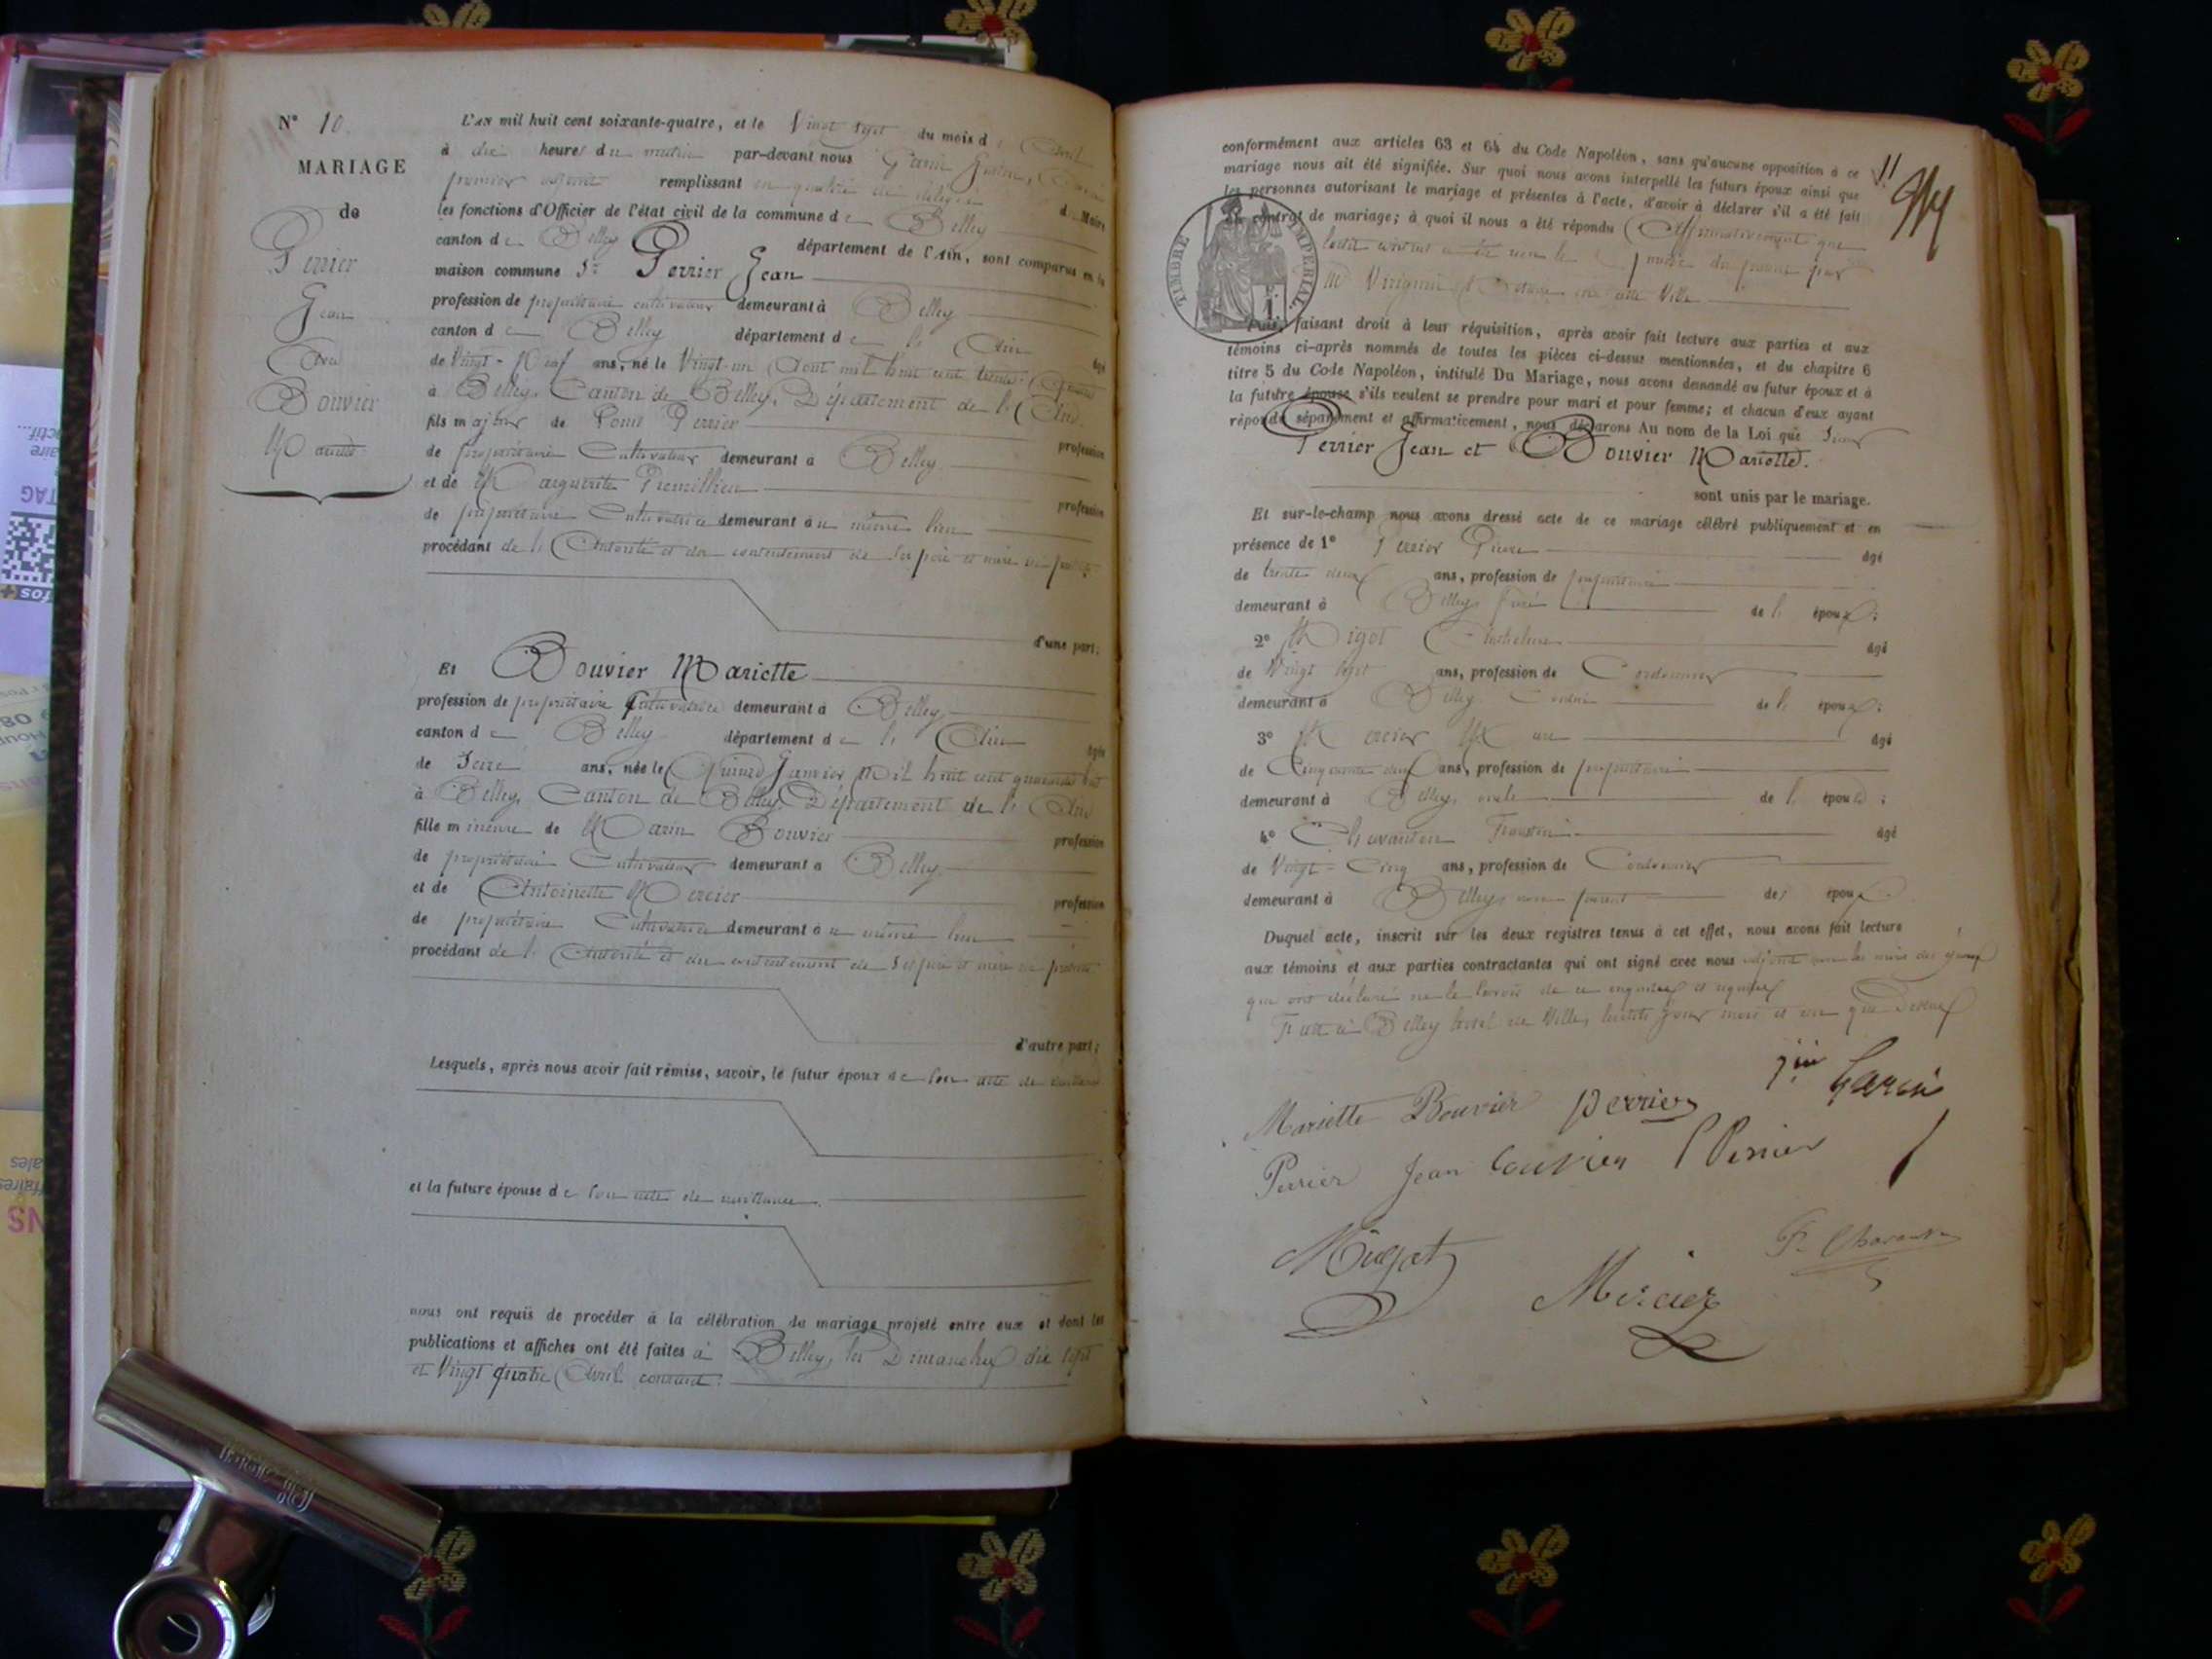 N° 10.
MARIAGE
de
Perrier
Jean
Avec
Bouvier
Mariette
L'AN mil huit cent soixante-quatre, et le Vingt Sept du mois d' Avril
à dix heures du matin par-devant nous Garin
premier adjoint remplissant en qualité de délégué d. Maire
les fonctions d'Officier de l'état civil de la commune de Belley
canton de Belley département de l'Ain, sont comparus en la
maison commune Sr Perrier Jean
profession de propriétaire cultivateur demeurant à Belley
canton de Belley département de l'Ain âgé
de Vingt-Neuf ans, né le Vingt un Aout mil huit cent trente quatre
à Belley, Canton de Belley, Département de l'Ain.
fils majeur de Louis Perrier profession
de propriétaire Cultivateur demeurant à Belley
et de Marguerite Premillieu profession
de propriétaire Cultivatrice demeurant au même lieu
procédant de l'Autorité et du consentement de Ses père et mère ici présents
d'une part;
Et Bouvier Mariette
profession de propriétaire Cultivatrice demeurant à Belley
canton de Belley département de l'Ain âgée
de Seize ans, née le Quinze Janvier Mil huit cent quarante huit
à Belley, Canton de Belley, Département de l'Ain
fille mineure de Marin Bouvier profession
de propriétaire Cultivateur demeurant à Belley
et de Antoinette Mercier profession
de propriétaire Cultivatrice demeurant au même lieu
procédant de l'Autorité et du consentement de Ses père et mère ici présents
d'autre part;
Lesquels, après nous avoir fait remise, savoir, le futur époux de Son acte de naissance
et la future épouse de Son acte de naissance.
nous ont requis de procéder à la célébration du mariage projeté entre eux et dont les
publications et affiches ont été faites à Belley, les Dimanches dix sept
et Vingt quatre Avril courant.
11
conformément aux articles 63 et 64 du Code Napoléon, sans qu'aucune opposition à ce
mariage nous ait été signifiée. Sur quoi nous avons interpellé les futurs époux ainsi que
les personnes autorisant le mariage et présentes à l'acte, d'avoir à déclarer s'il a été fait
un contrat de mariage; à quoi il nous a été répondu Affirmativement que
ledit contrat a été reçu le du présent par
Me Notaire en cette Ville
TIMBRE IMPÉRIAL.
Puis, faisant droit à leur réquisition, après avoir fait lecture aux parties et aux
témoins ci-après nommés de toutes les pièces ci-dessus mentionnées, et du chapitre 6
titre 5 du Code Napoléon, intitulé Du Mariage, nous avons demandé au futur époux et à
la future épouse s'ils veulent se prendre pour mari et pour femme; et chacun d'eux ayant
répondu séparément et affirmativement, nous déclarons Au nom de la Loi que
Perrier Jean et Bouvier Mariette.
sont unis par le mariage.
Et sur-le-champ nous avons dressé acte de ce mariage célébré publiquement et en
présence de 1° Perrier Pierre âgé
de trente deux ans, profession de propriétaire
demeurant à Belley, frère de l'époux;
2° Migot Anthelme âgé
de Vingt Sept ans, profession de Cordonnier
demeurant à Belley Cousin de l'époux;
3° Mercier Marc âgé
de Cinquante deux ans, profession de propriétaire
demeurant à Belley, oncle de l'épouse;
4° Chavanton Faustin âgé
de Vingt-Cinq ans, profession de Cordonnier
demeurant à Belley, non parent des époux.
Duquel acte, inscrit sur les deux registres tenus à cet effet, nous avons fait lecture
aux témoins et aux parties contractantes qui ont signé avec nous adjoint non les mères des époux
qui ont déclaré ne le Savoir de ce enquises et requises
Fait à Belley hotel de Ville, lesdits jour mois et an que dessus
Mariette Bouvier perrier Garin
Perrier Jean bouvier Perrier
Migot Mercier F. Chavanton